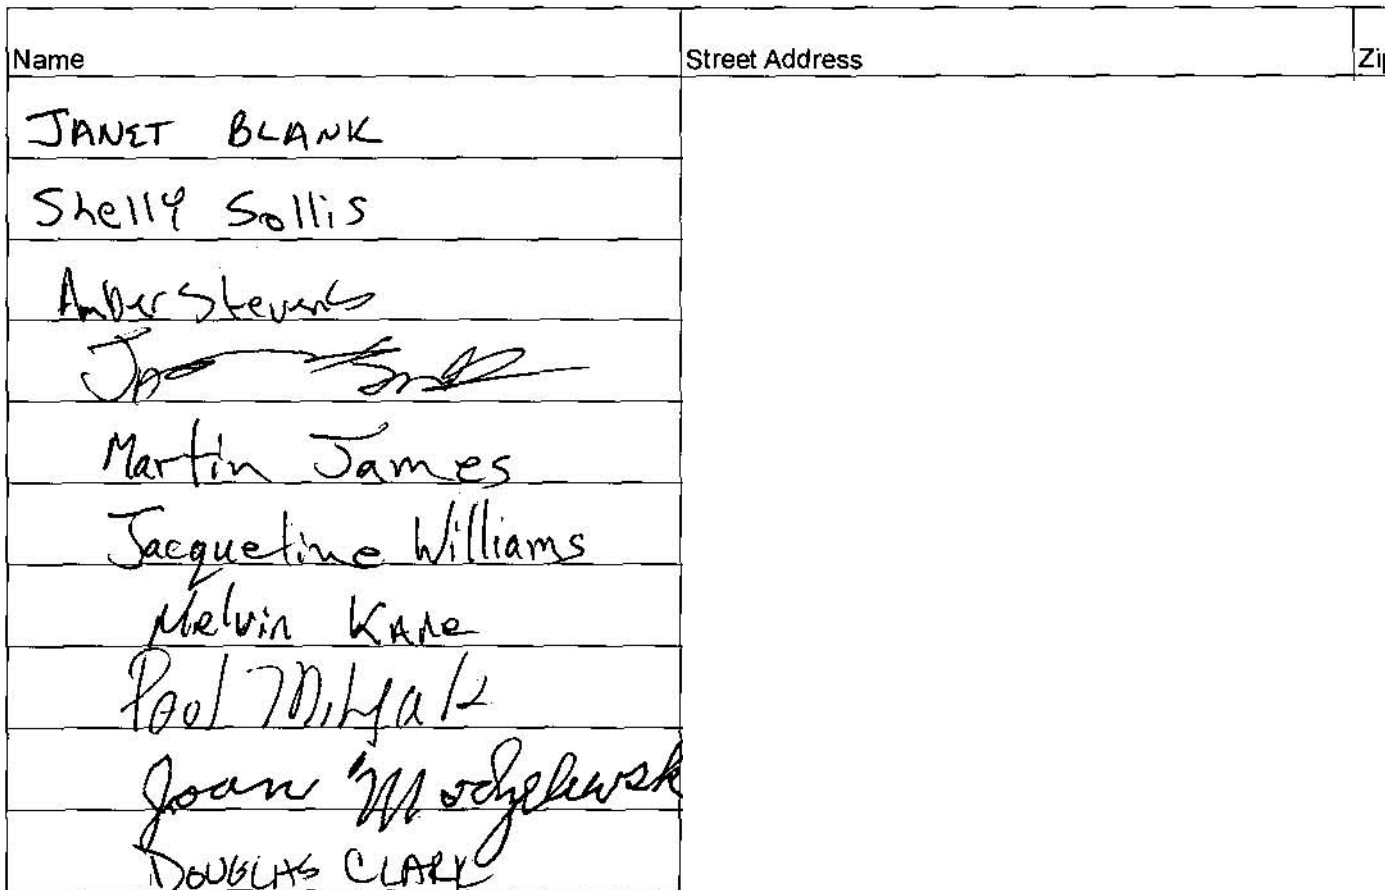 Name Street Address Zip
JANET BLANK
Shelly Sollis
Amber Stevens
Martin James
Jacqueline Williams
Melvin Kane
Joan Modzelewsk
DOUGLAS CLARK